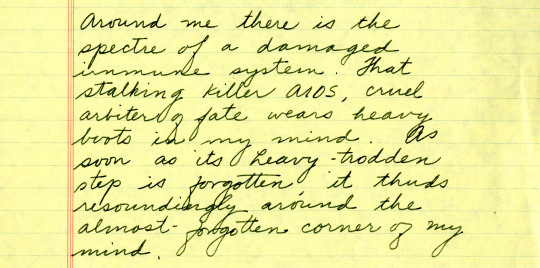 Around me there is the
spectre of a damaged
immune system. That
stalking killer AIDS, cruel
arbiter of fate wears heavy
boots in my mind. As
soon as its heavy-trodden
step is forgotten it thuds
resoundingly around the
almost-forgotten corner of my
mind.